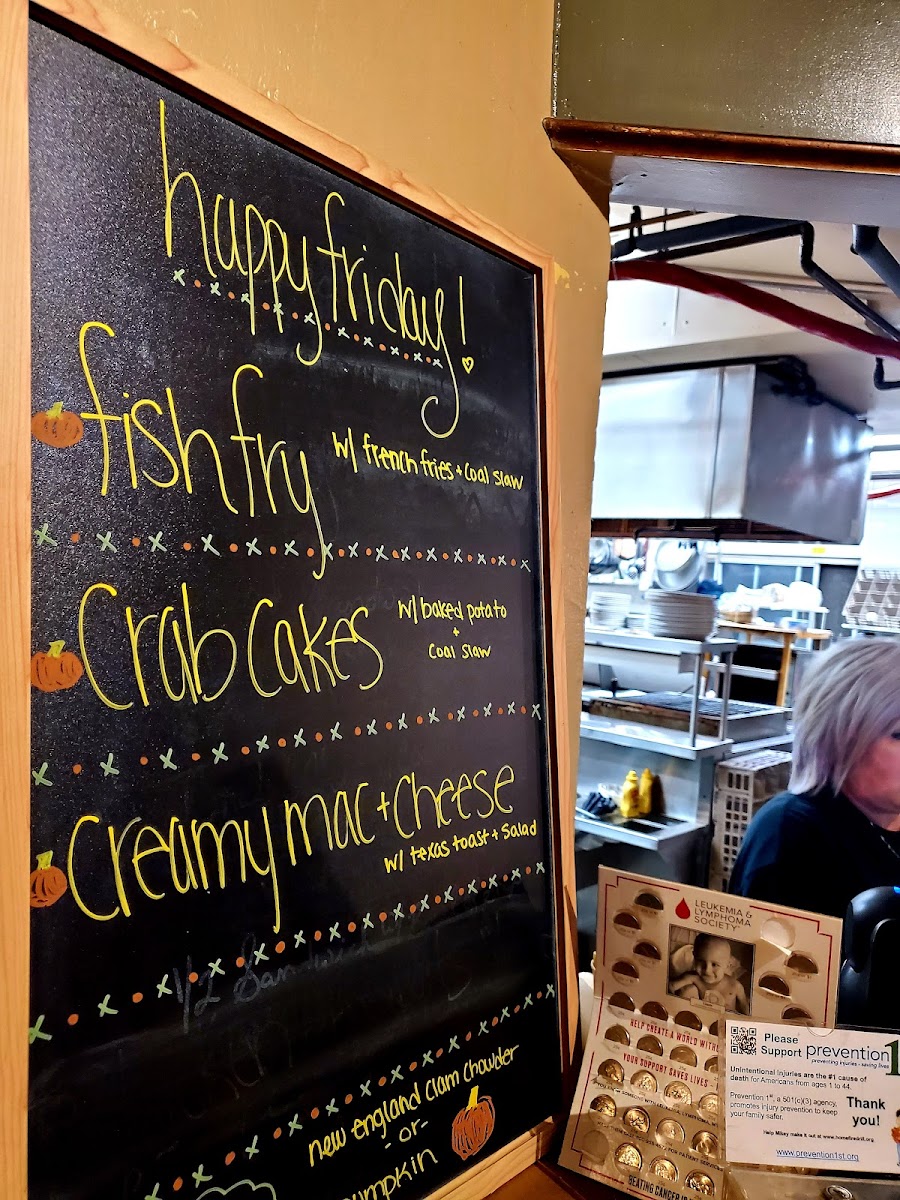 happy friday!
fish fry
w/ french fries + coal slaw
Crab Cakes
w/ baked potato
+
coal slaw
Creamy mac + cheese
w/ texas toast + salad
1/2 Sandwich
new england clam chowder
- or -
pumpkin
LEUKEMIA &
LYMPHOMA
SOCIETY
HELP CREATE A WORLD WITH
YOUR SUPPORT SAVES LIVES
BEATING CANCER IS
Please
Support
prevention1
preventing injuries - saving lives
Unintentional injuries are the #1 cause of
death for Americans from ages 1 to 44.
Prevention 1st, a 501(c)(3) agency,
promotes injury prevention to keep
your family safer.
Thank
you!
Help Mikey make it out at www.homefiredrill.org
www.prevention1st.org